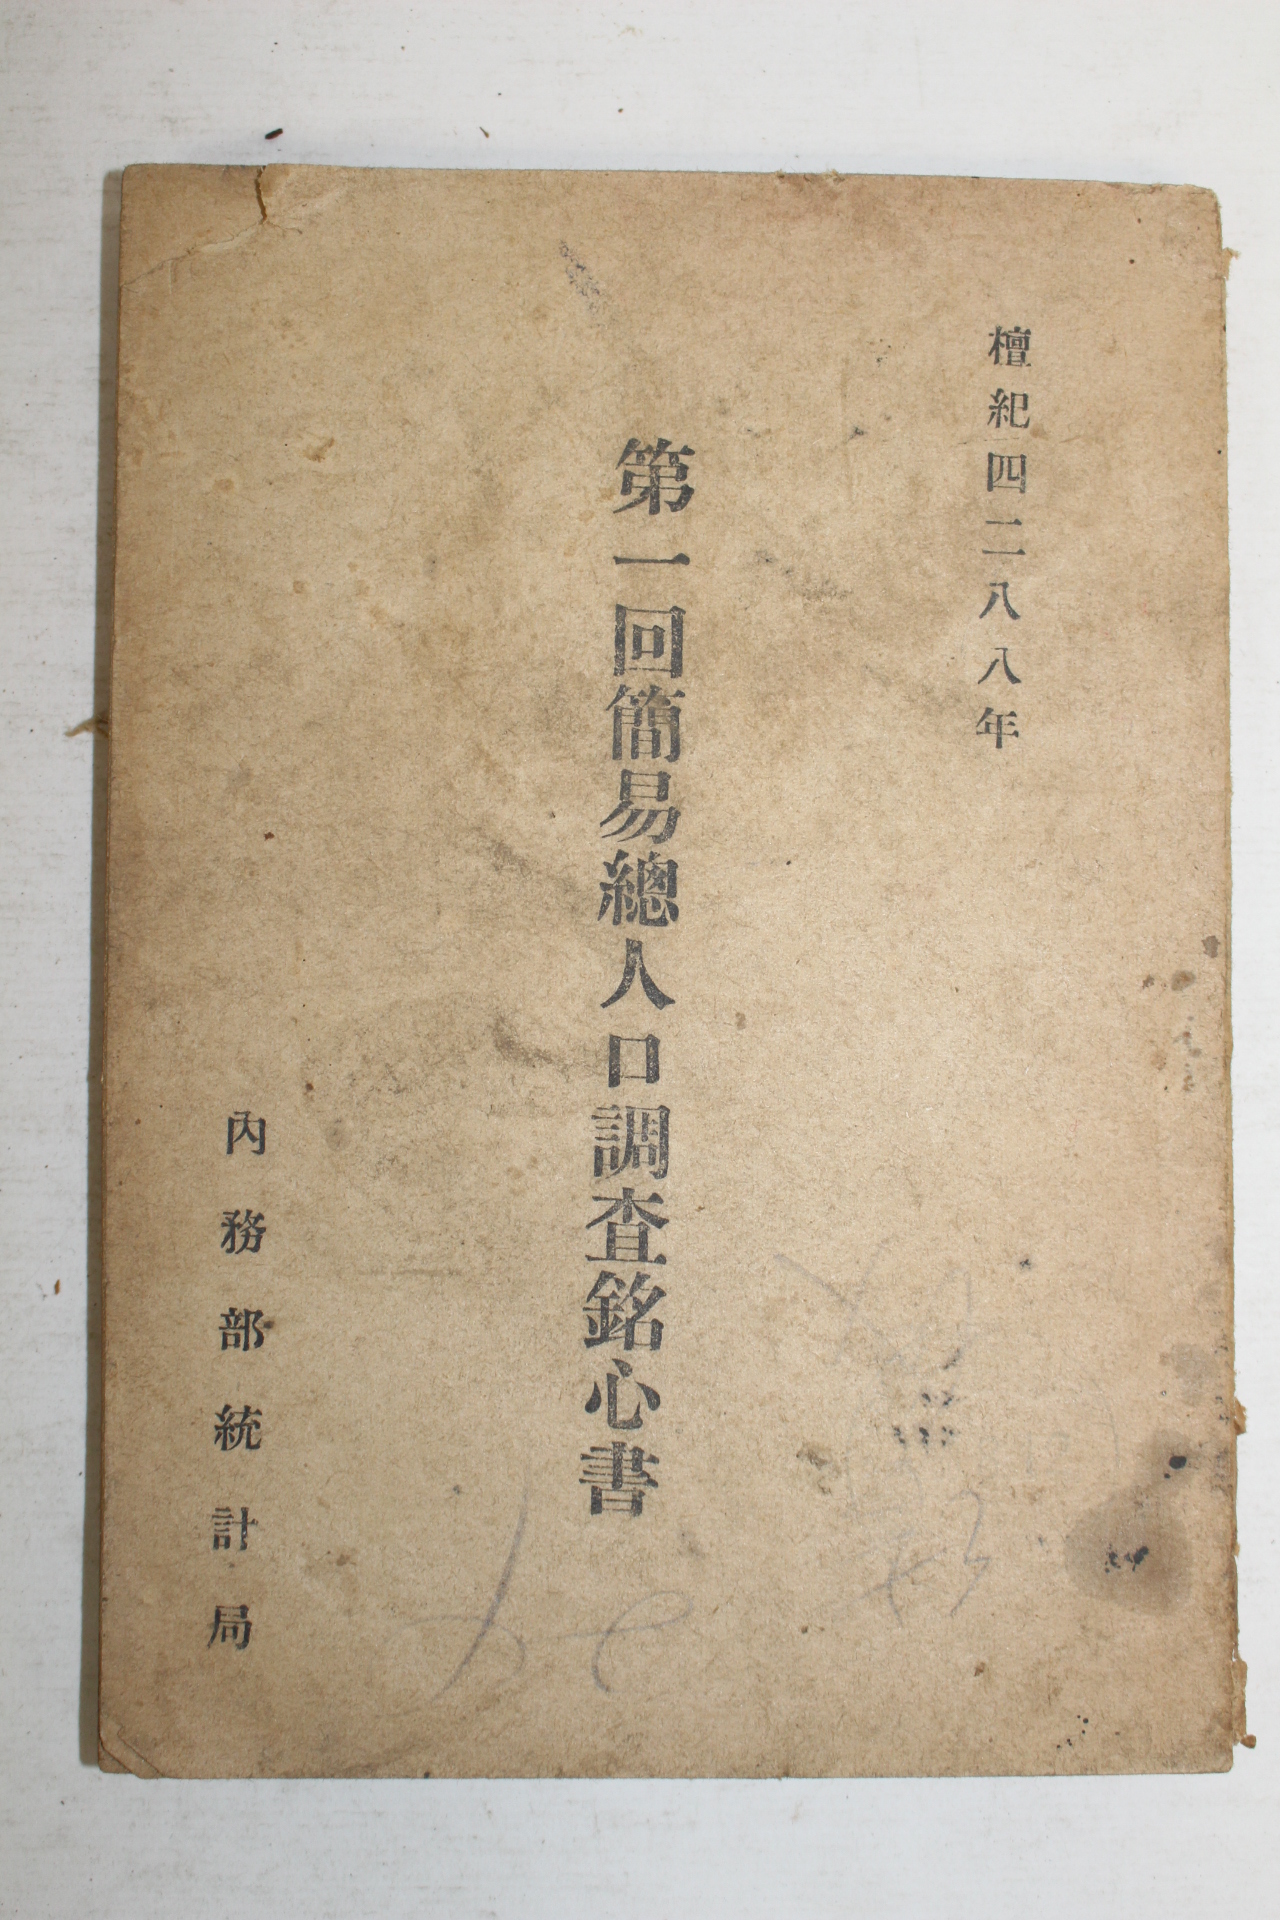 檀紀四二八八年
第一回簡易總人口調査銘心書
內務部統計局